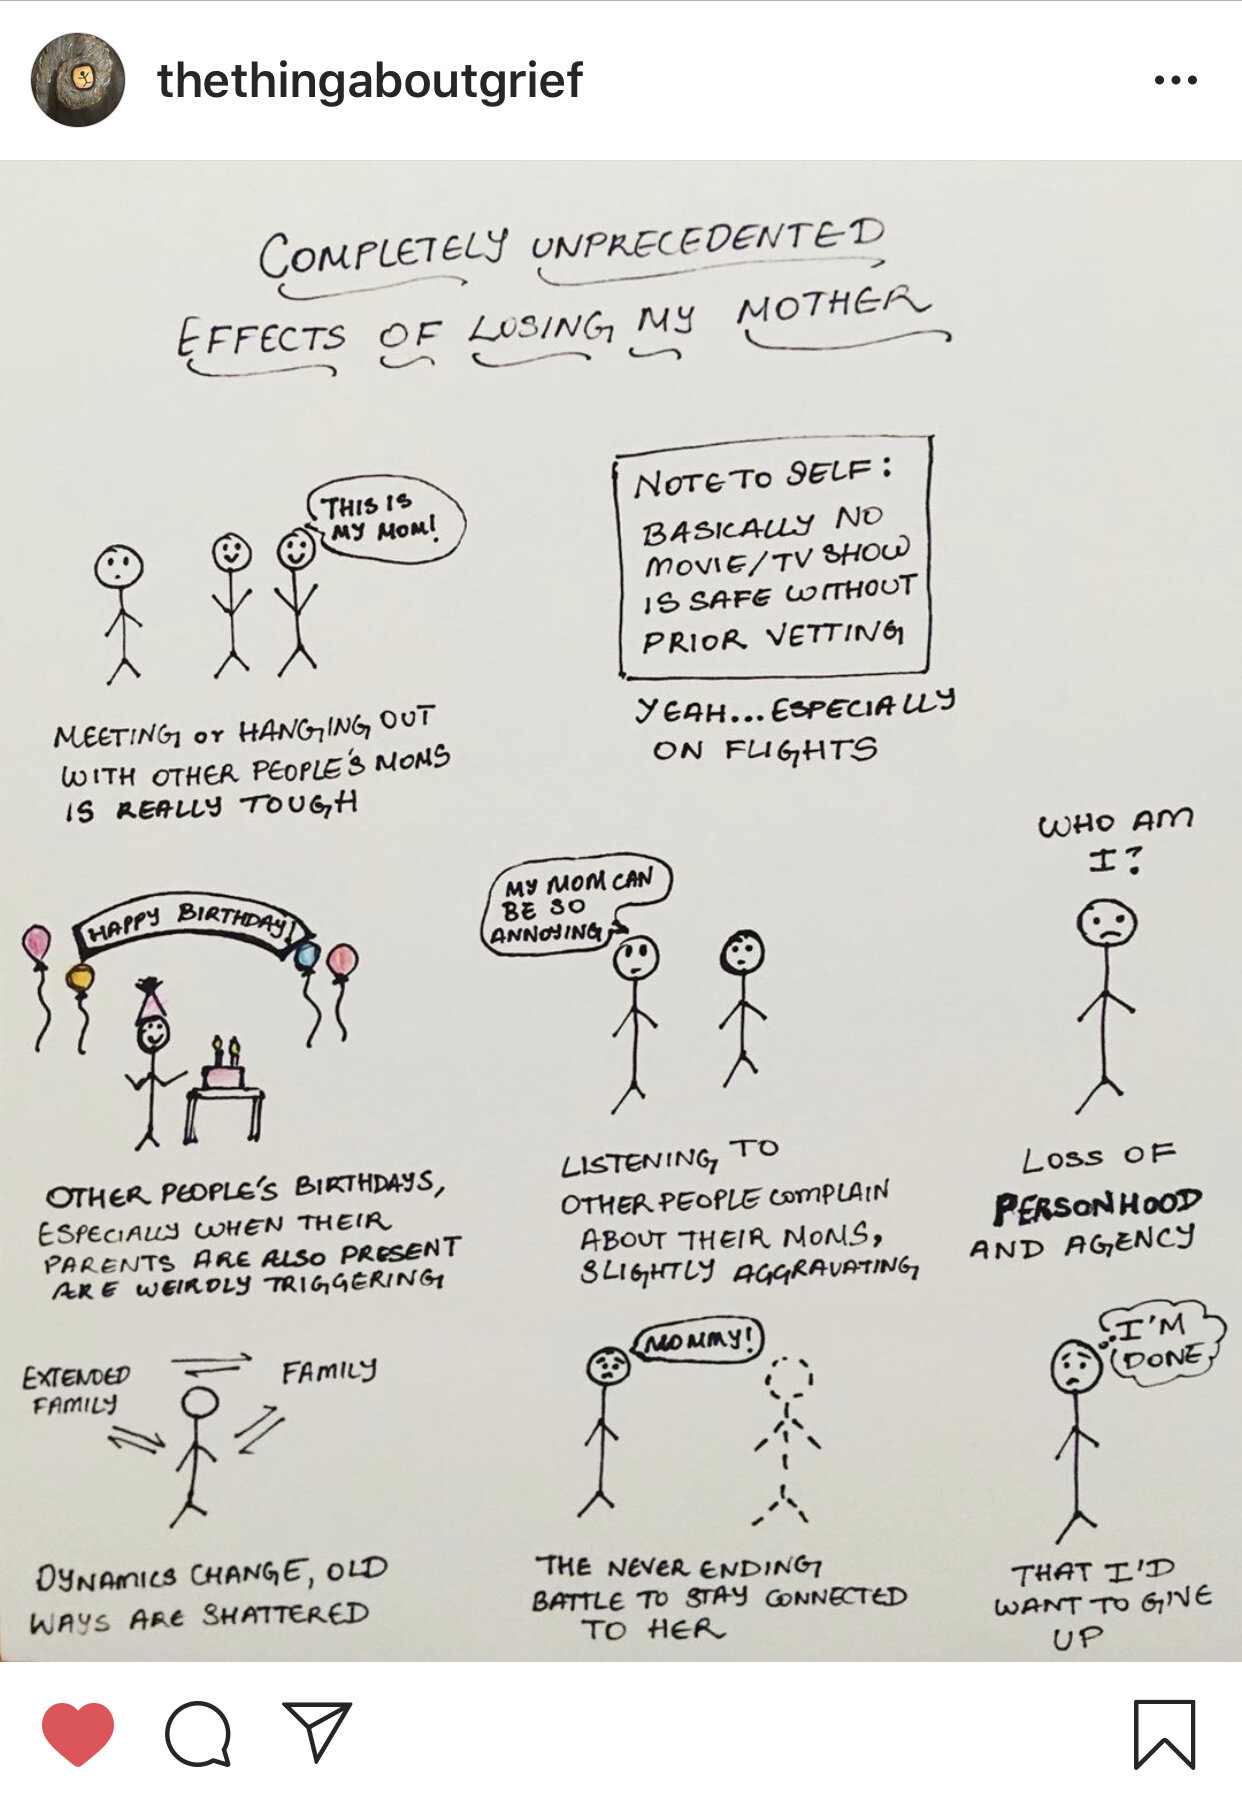 thethingaboutgrief
COMPLETELY UNPRECEDENTED
EFFECTS OF LOSING MY MOTHER
THIS IS
MY MOM!
MEETING or HANGING OUT
WITH OTHER PEOPLE'S MOMS
IS REALLY TOUGH
NOTE TO SELF:
BASICALLY NO
MOVIE/TV SHOW
IS SAFE WITHOUT
PRIOR VETTING
YEAH...ESPECIALLY
ON FLIGHTS
HAPPY BIRTHDAY!
OTHER PEOPLE'S BIRTHDAYS,
ESPECIALLY WHEN THEIR
PARENTS ARE ALSO PRESENT
ARE WEIRDLY TRIGGERING
MY MOM CAN
BE SO
ANNOYING
LISTENING TO
OTHER PEOPLE COMPLAIN
ABOUT THEIR MOMS,
SLIGHTLY AGGRAVATING
WHO AM
I?
LOSS OF
PERSONHOOD
AND AGENCY
EXTENDED
FAMILY
FAMILY
DYNAMICS CHANGE, OLD
WAYS ARE SHATTERED
MOMMY!
THE NEVER ENDING
BATTLE TO STAY CONNECTED
TO HER
I'M
DONE
THAT I'D
WANT TO GIVE
UP